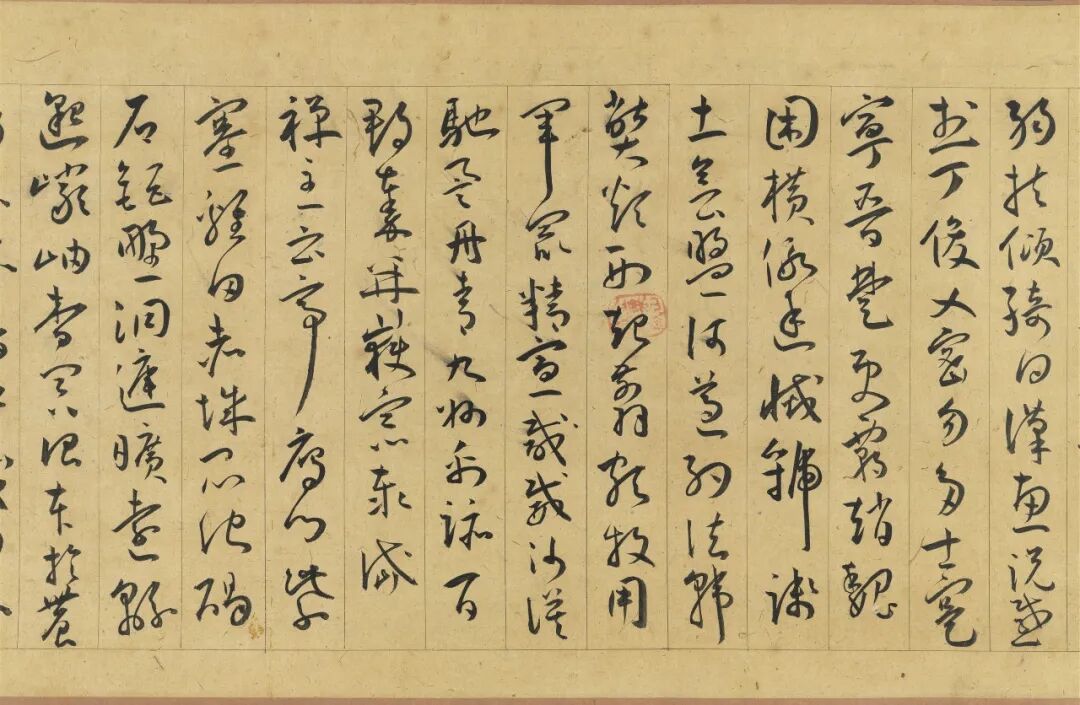 弱扶傾綺回漢惠說感
武丁俊乂密勿多士寔
寧晉楚更霸趙魏
困橫假途滅虢踐
土會盟何遵約法韓
弊煩刑起翦頗牧用
軍最精宣威沙漠
馳譽丹青九州禹跡百
郡秦并嶽宗泰岱
禪主云亭雁門紫
塞雞田赤城昆池碣
石鉅野洞庭曠遠緜
邈巖岫杳冥治本於農